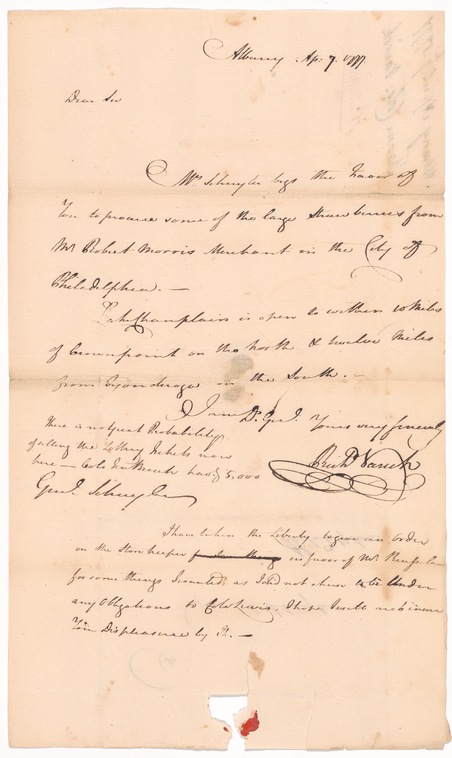 Albany Ap: 7. 1777.
Dear Sir
Mrs Schuyler begs the Favor of
You to procure some of the large Strawberries from
Mr Robert Morris Merchant in the City of
Philadelphia. —
Lake Champlain is open to within 10 Miles
of Crownpoint on the North & twelve Miles
from Tyonderoga on the South. —
I am Dr. Genl. Yours very sincerely
Richd Varick
There is no Great Probability
of selling the Lottery Tickets now
here — Colo has 5,000
Genl. Schuyler
I have taken the Liberty to give an order
on the Storekeeper in favor of Mr
for some things I wanted, as I did not chuse to be Under
any Obligations to Colo Lewis. I hope I will not incur
Your Displeasure by It. —